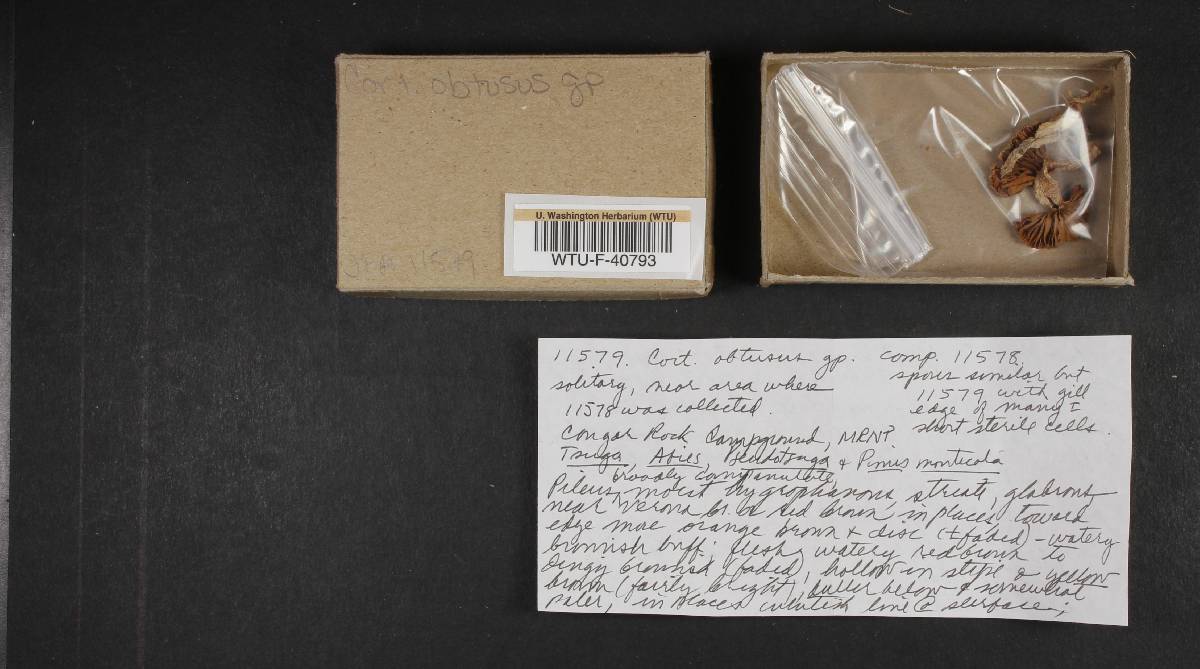 Cort. obtusus gp
U. Washington Herbarium (WTU)
WTU-F-40793
11579
11579. Cort. obtusus gp. comp. 11578,
solitary, near area where
11578 was collected.
spores similar but
11579 with gill
edge of many ±
short sterile cells.
Cougar Rock Campground, MRNP.
Tsuga, Abies, Pseudotsuga & Pinus monticola
broadly campanulate
Pileus, moist hygrophanous, striate, glabrous,
near Verona br. or red brown, in places toward
edge more orange brown & disc (± faded) - watery
brownish buff; flesh watery red brown to
dingy brownish (faded), hollow in stipe & yellow
brown (fairly bright), duller below & somewhat
paler, in places whitish line @ surface;